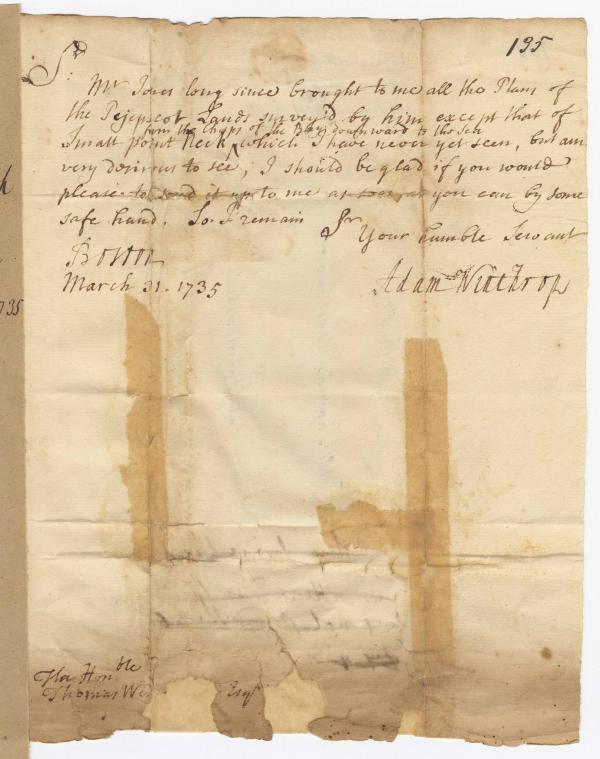 195
Sr.
Mr Jones long since brought to me all the Plans of
the Pejepscot Lands survey'd by him except that of
from the Chops of the Bay downward to the Sea
Small point Neck which I have never yet seen, but am
very desirous to see, I should be glad if you would
please to send it up to me as soon as you can by some
safe hand. So I remain Sr
Your humble Servant
Boston
March 31. 1735
Adam Winthrop
The Honble
Thomas Esqr
735